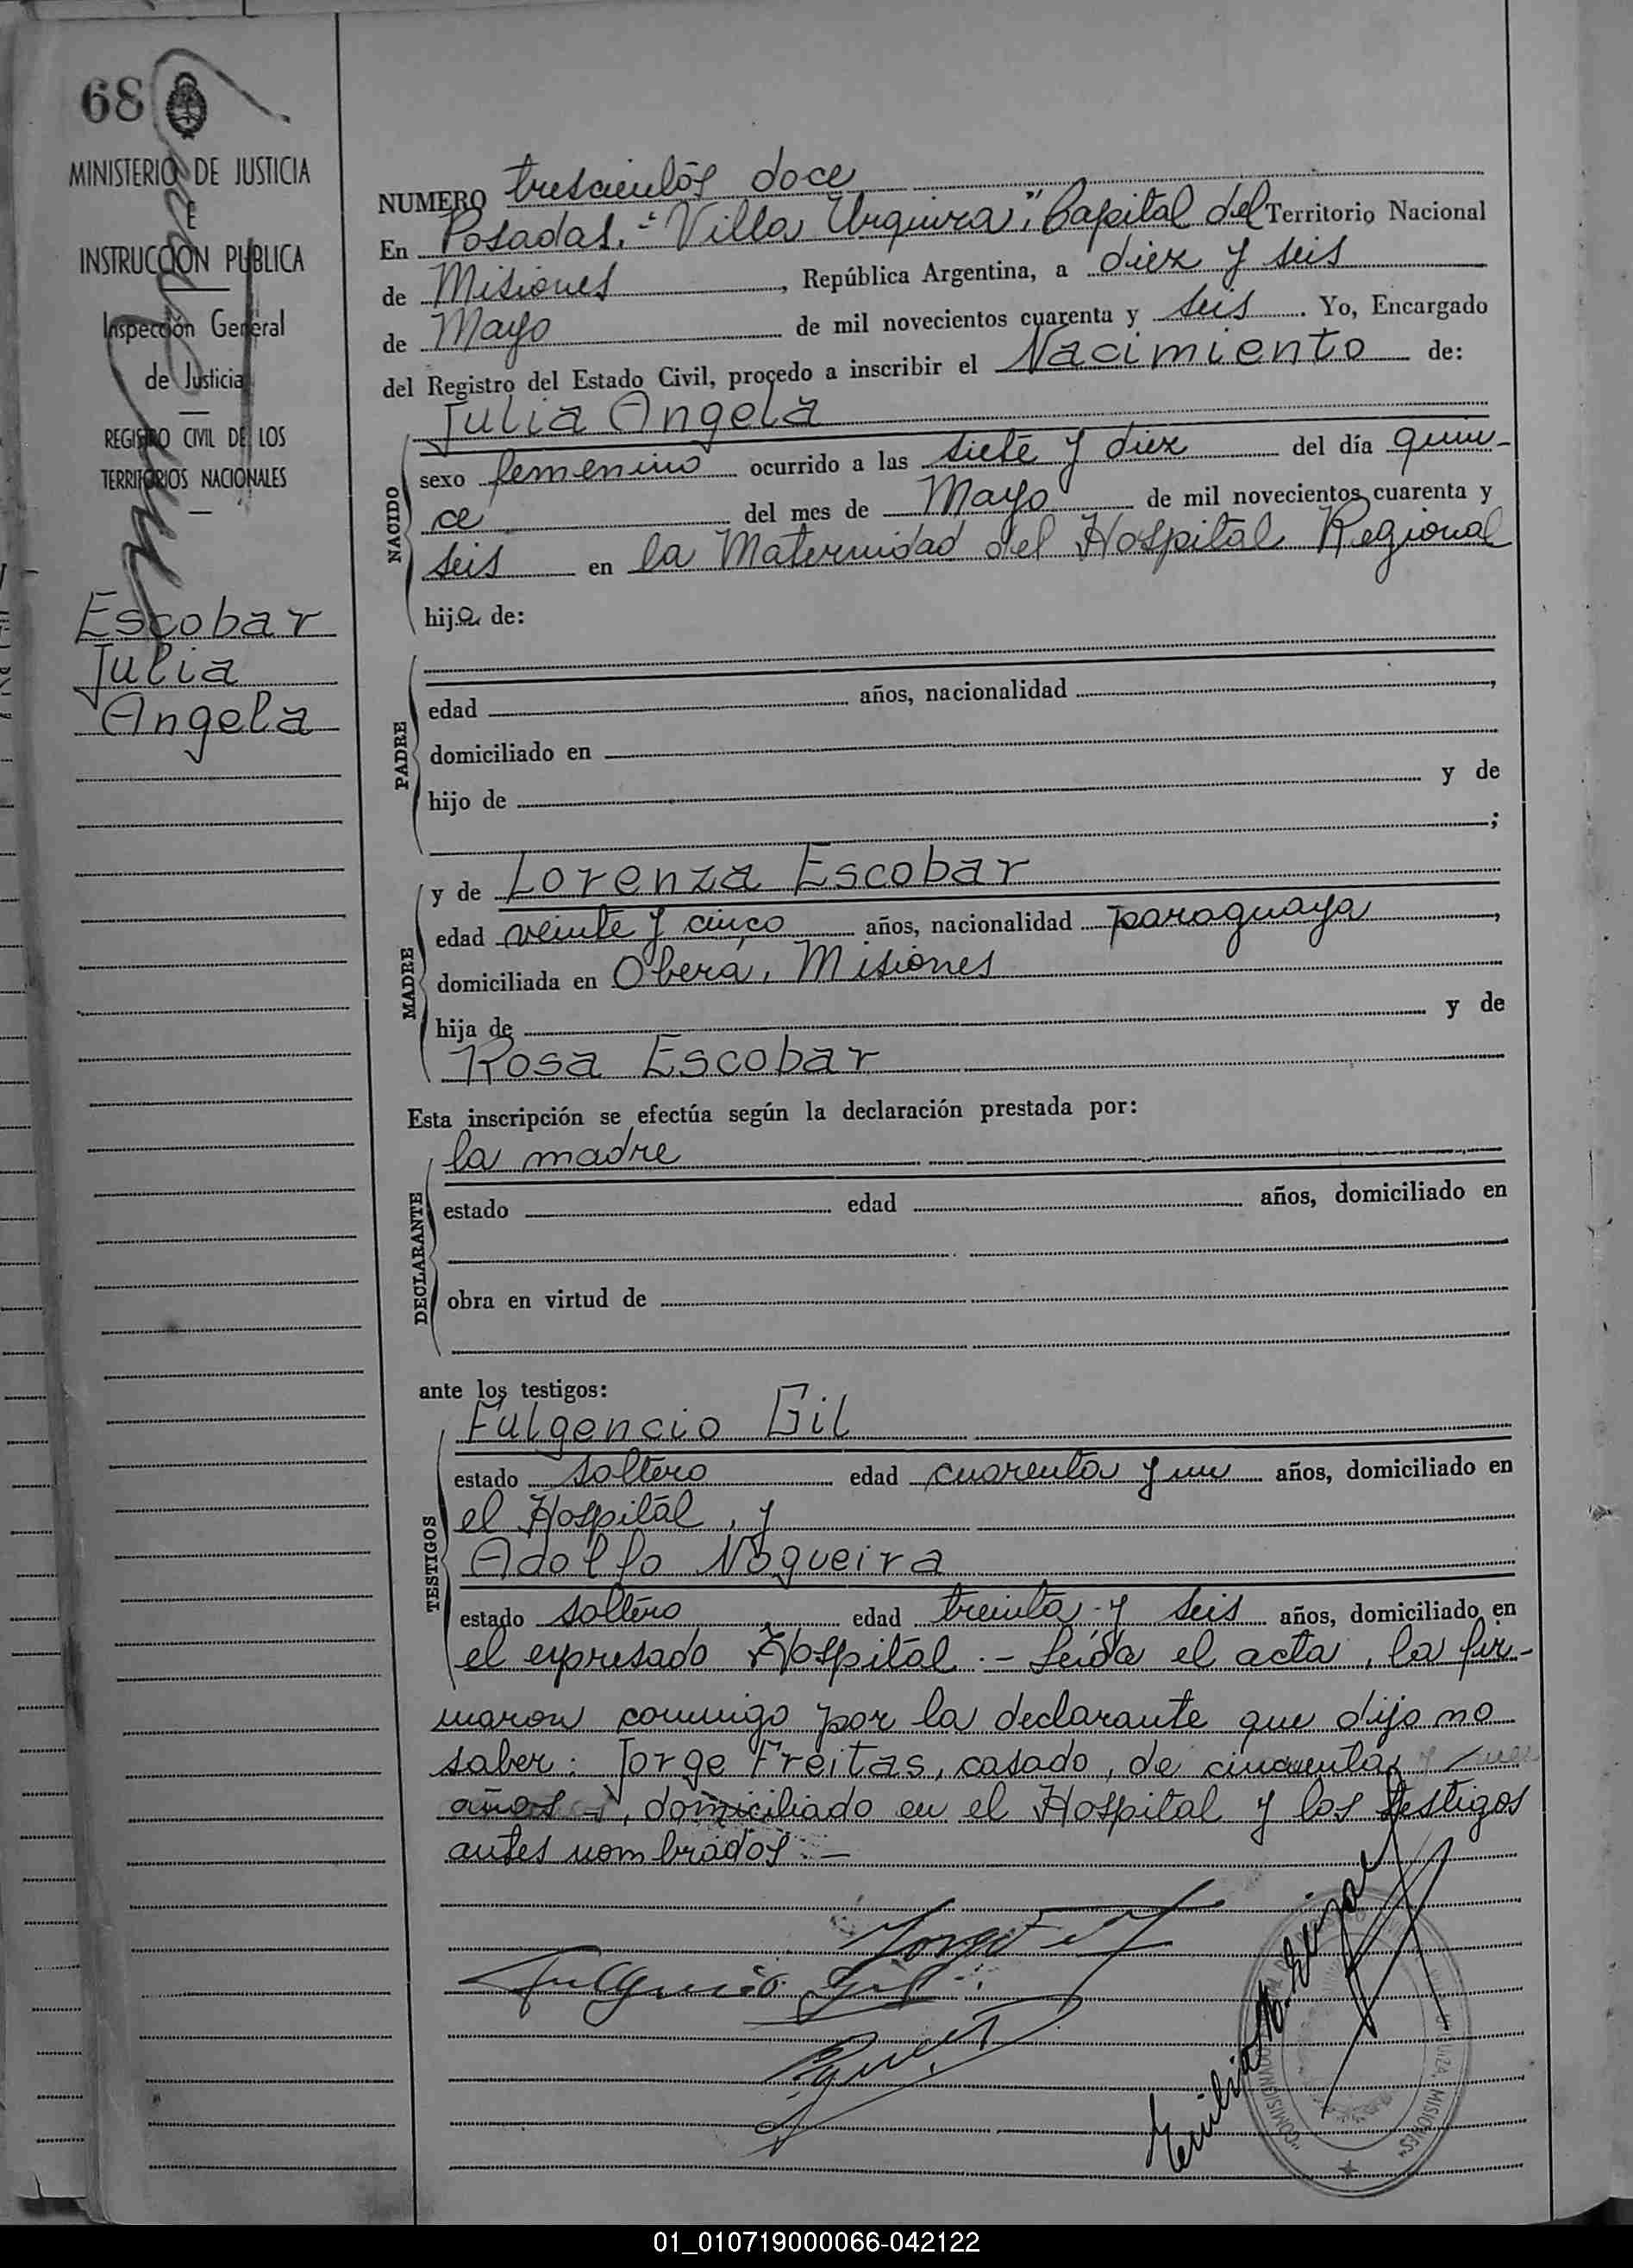 68
MINISTERIO DE JUSTICIA
E
INSTRUCCION PUBLICA
Inspección General
de Justicia
REGISTRO CIVIL DE LOS
TERRITORIOS NACIONALES
Escobar
Julia
Angela
NUMERO trescientos doce
En Posadas, "Villa Urquiza", Capital del Territorio Nacional
de Misiones, República Argentina, a diez y seis
de Mayo de mil novecientos cuarenta y seis. Yo, Encargado
del Registro del Estado Civil, procedo a inscribir el Nacimiento de:
NACIDO
Julia Angela
sexo femenino ocurrido a las siete y diez del día quin-
ce del mes de Mayo de mil novecientos cuarenta y
seis en la Maternidad del Hospital Regional
hija de:
PADRE
edad años, nacionalidad ,
domiciliado en
hijo de y de
;
MADRE
y de Lorenza Escobar
edad veinte y cinco años, nacionalidad paraguaya,
domiciliada en Oberá, Misiones
hija de y de
Rosa Escobar
Esta inscripción se efectúa según la declaración prestada por:
DECLARANTE
la madre
estado edad años, domiciliado en
obra en virtud de
ante los testigos:
TESTIGOS
Fulgencio Gil
estado soltero edad cuarenta y un años, domiciliado en
el Hospital, y
Adolfo Nogueira
estado soltero edad treinta y seis años, domiciliado en
el expresado Hospital.- Leída el acta, la fir-
maron conmigo por la declarante que dijo no
saber: Jorge Freitas, casado, de cincuenta y
años, domiciliado en el Hospital y los testigos
antes nombrados.-
Jorge
Fulgencio Gil
MISIONES
01_010719000066-042122